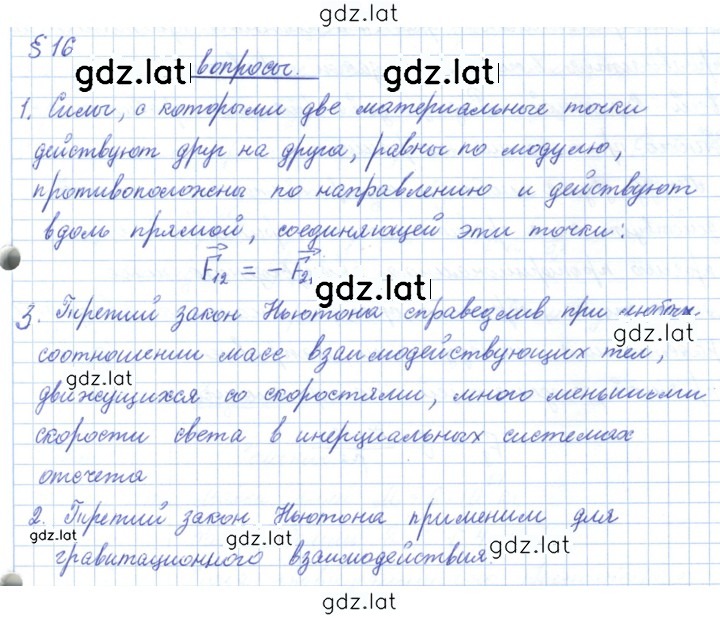 gdz.lat
§ 16
gdz.lat вопросы. gdz.lat
1. Силы, с которыми две материальные точки
действуют друг на друга, равны по модулю,
противоположены по направлению и действуют
вдоль прямой, соединяющей эти точки:
F₁₂ = - F₂₁
gdz.lat
3. Третий закон Ньютона справедлив при любых
gdz.lat
соотношении масс взаимодействующих тел,
gdz.lat
движущихся со скоростями, много меньшими
скорости света в инерциальных системах
отсчета
2. Третий закон Ньютона применим для
gdz.lat gdz.lat gdz.lat
гравитационного взаимодействия.
gdz.lat